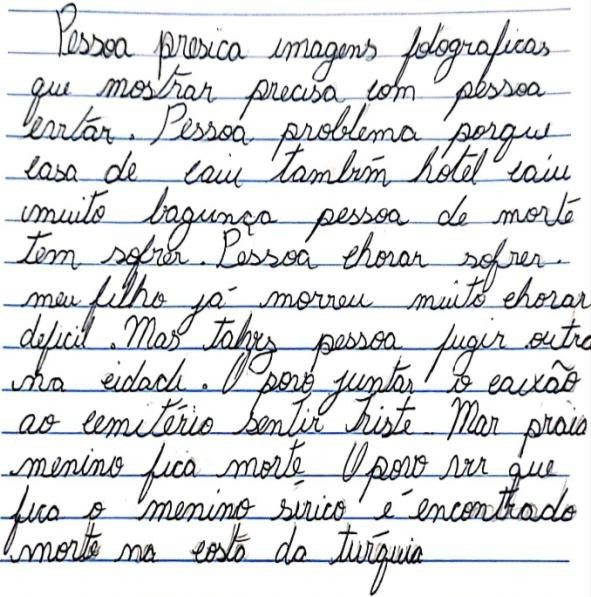 Pessoa presica imagens fotograficas
que mostrar precisa com pessoa
evitar. Pessoa problema porque
casa de caiu também hotel caiu
muito bagunça pessoa de morte
tem sofrer. Pessoa chorar sofrer.
meu filho já morreu muito chorar
deficil. Mas talvez pessoa fugir outra
na cidade. O povo juntar o caixão
ao cemitério sentir triste. Mar praia
menino fica morte O povo ver que
fica o menino sírico é encontrado
morte na costa da turquia